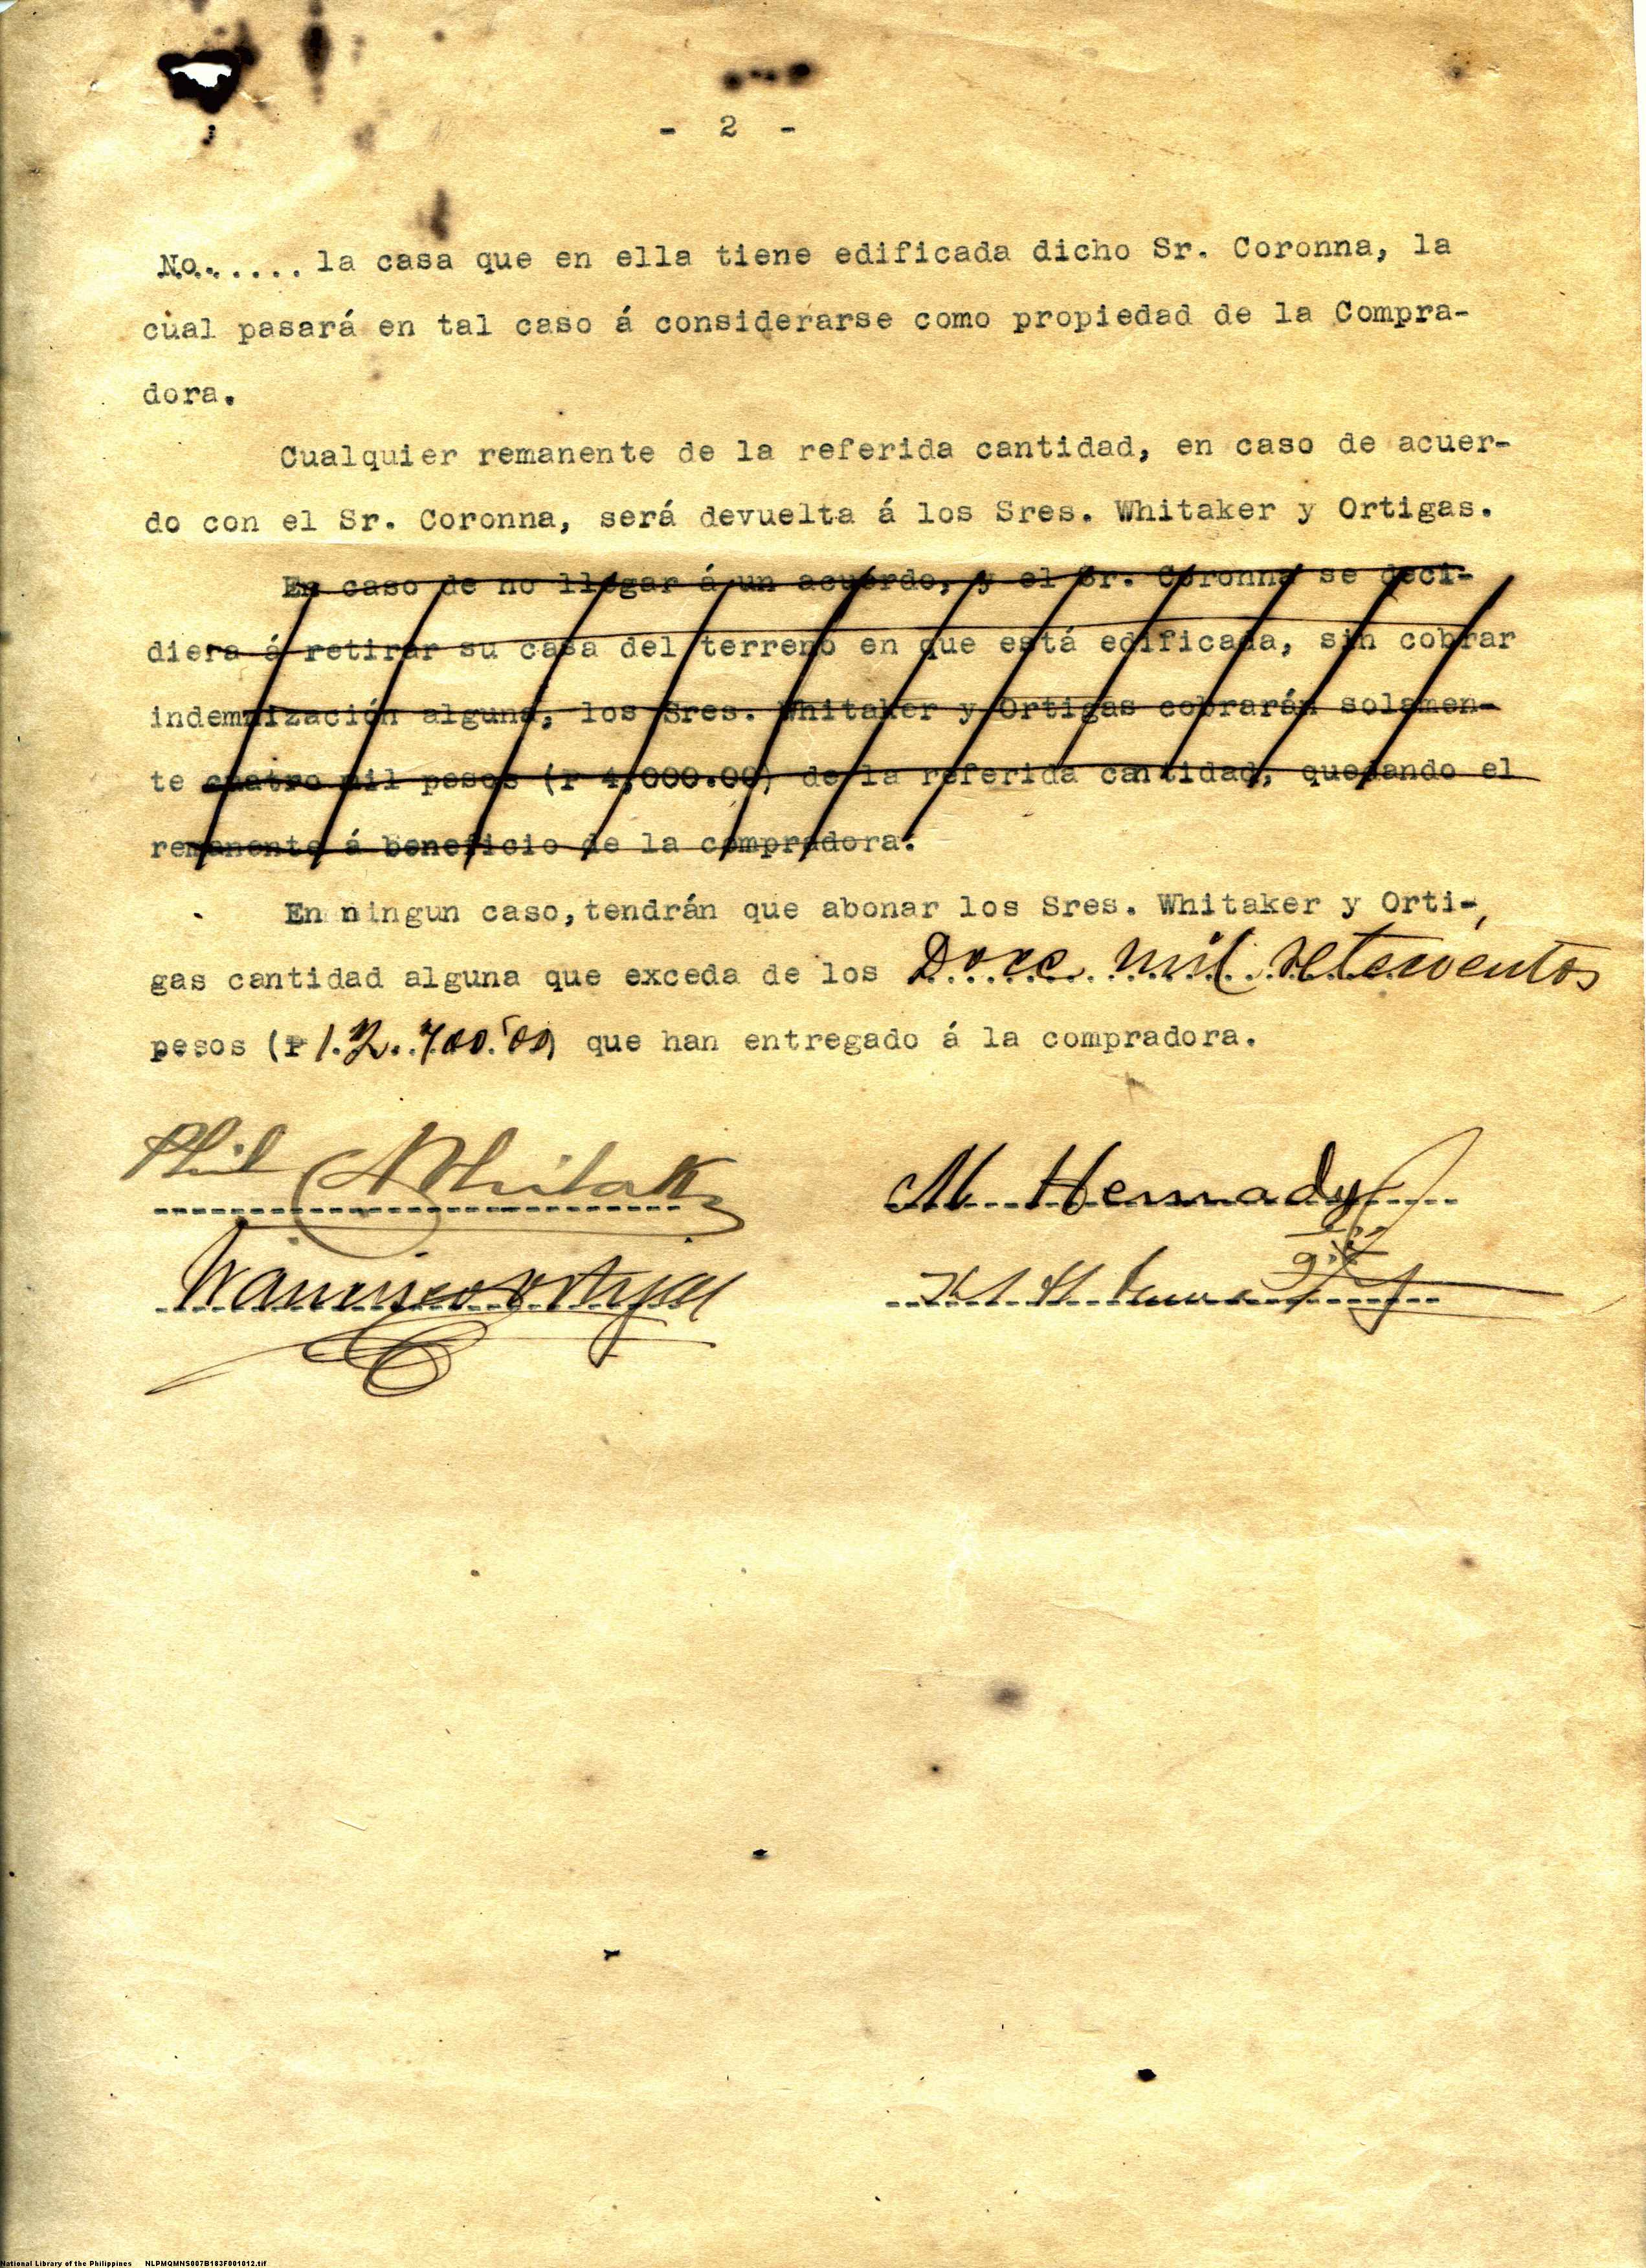 - 2 -
No...... la casa que en ella tiene edificada dicho Sr. Coronna, la
cual pasará en tal caso á considerarse como propiedad de la Compra-
dora.
Cualquier remanente de la referida cantidad, en caso de acuer-
do con el Sr. Coronna, será devuelta á los Sres. Whitaker y Ortigas.
En caso de no llegar á un acuerdo, y el Sr. Coronna se deci-
diera á retirar su casa del terreno en que está edificada, sin cobrar
indemnización alguna, los Sres. Whitaker y Ortigas cobrarán solamen-
te cuatro mil pesos (₱ 4,000.00) de la referida cantidad, quedando el
remanente á beneficio de la compradora.
En ningun caso, tendrán que abonar los Sres. Whitaker y Orti-
gas cantidad alguna que exceda de los Doce mil setecientos
pesos (₱ 12.700.00) que han entregado á la compradora.
Phil C Whitaker M. Hemady
Francisco Ortigas
National Library of the Philippines NLPMQMNS007B183F001012.tif